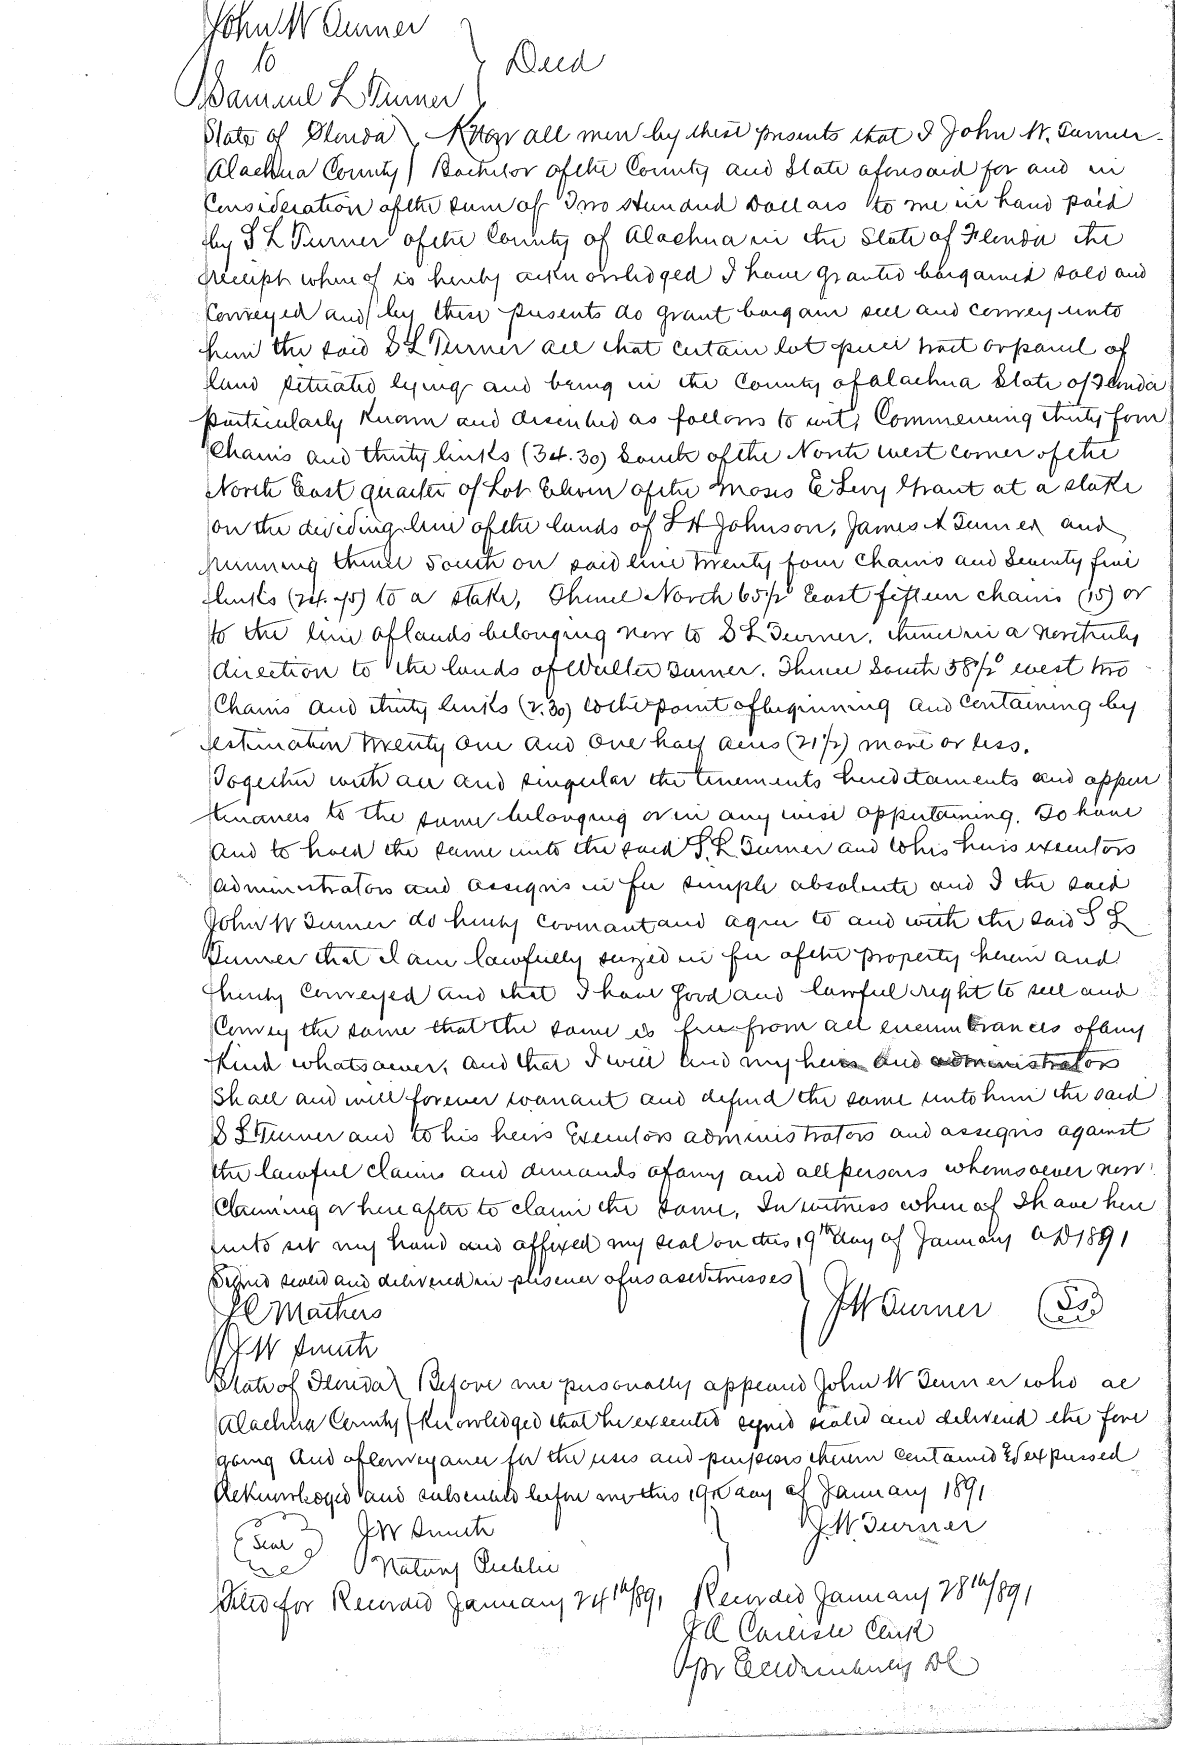 John W Turner
to } Deed
Samuel L Turner
State of Florida } Know all men by these presents that I John W. Turner
Alachua County } Bachelor of the County and State aforesaid for and in
Consideration of the sum of Two Hundred Dollars to me in hand paid
by S L Turner of the County of Alachua in the State of Florida the
receipt where of is hereby acknowledged I have granted bargained sold and
Conveyed and by these presents do grant bargain sell and convey unto
him the said S L Turner all that certain lot piece tract or parcel of
land situated lying and being in the County of Alachua State of Florida
particularly known and described as follows to wit, Commencing thirty four
Chains and thirty links (34.30) South of the North west corner of the
North East quarter of Lot Eleven of the Moses E Levy Grant at a stake
on the dividing line of the lands of L H Johnson, James A Turner and
running thence South on said line twenty four Chains and Seventy five
links (24.75) to a stake, Thence North 65 1/2° East fifteen chains (15) or
to the line of lands belonging now to S L Turner, thence in a northerly
direction to the lands of Walter Turner. Thence South 58 1/2° west two
Chains and thirty links (2.30) to the point of beginning and containing by
estimation twenty one and one half acres (21 1/2) more or less.
Together with all and singular the tenements hereditaments and appur
tenances to the same belonging or in any wise appertaining. To have
and to hold the same unto the said S. L Turner and to his heirs executors
administrators and assigns in fee simple absolute and I the said
John W Turner do hereby covenant and agree to and with the said S L
Turner that I am lawfully seized in fee of the property herein and
hereby conveyed and that I have good and lawful right to sell and
Convey the same that the same is free from all encumbrances of any
Kind whatsoever, and that I will and my heirs and administrators
Shall and will forever warrant and defend the same unto him the said
S L Turner and to his heirs Executors administrators and assigns against
the lawful claims and demands of any and all persons whomsoever now
Claiming or here after to claim the same. In witness where of I have here
unto set my hand and affixed my seal on this 19th day of January AD 1891
Signed sealed and delivered in presence of us as witnesses }
J C Mathers } J W Turner (Ls)
J W Smith
State of Florida } Before me personally appeared John W Turner who ac
Alachua County } knowledged that he executed signed sealed and delivered the fore
going deed of conveyance for the uses and purposes therein contained & expressed
Acknowledged and subscribed before me this 19th day of January 1891
(Seal) J W Smith } J. W. Turner
Notary Public
Filed for Record January 24th/891 Recorded January 28th/891
J A Carlisle Clerk
pr DC